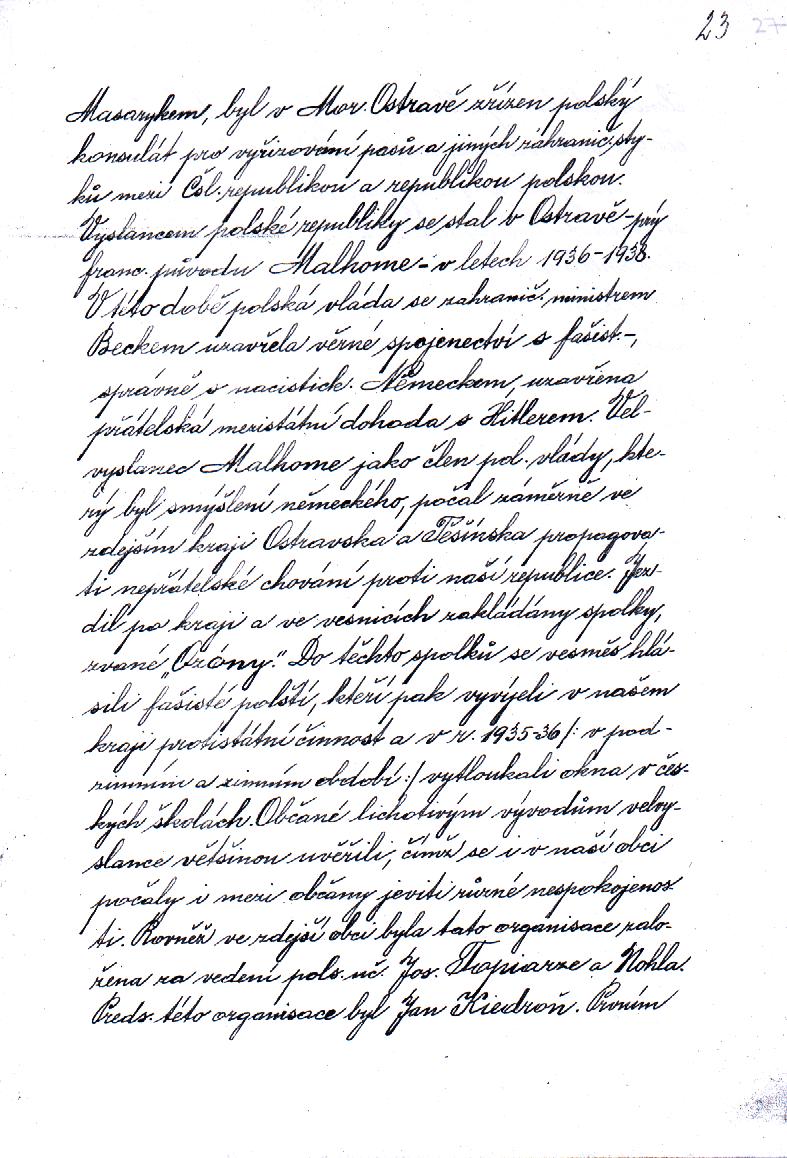 23 27
Masarykem, byl v Mor. Ostravě zřízen polský
konsulát pro vyřizování pasů a jiných zahranič. sty-
ků mezi Čsl. republikou a republikou polskou.
Vyslancem polské republiky se stal v Ostravě - prý
franc. původu Malhome - v letech 1936-1938.
V této době polská vláda se zahranič. ministrem
Beckem uzavřela věrné spojenectví s fašist.-,
správně s nacistick. Německem, uzavřena
přátelská mezistátní dohoda s Hitlerem. Vel-
vyslanec Malhome jako člen pol. vlády, kte-
rý byl smýšlení německého, počal záměrně ve
zdejším kraji Ostravska a Těšínska propagova-
ti nepřátelské chování proti naší republice. Jez-
dil po kraji a ve vesnicích zakládány spolky,
zvané „Ozóny." Do těchto spolků se vesměs hlá-
sili fašisté polští, kteří pak vyvíjeli v našem
kraji protistátní činnost a v r. 1935-36 /: v pod-
zimním a zimním období :/ vytloukali okna v čes-
kých školách. Občané lichotivým vývodům velvy-
slance většinou uvěřili, čímž se i v naší obci
počaly i mezi občany jeviti různé nespokojenos
ti. Rovněž ve zdejší obci byla tato organisace zalo-
žena za vedení pols. uč. Jos. Topiarze a Nohla.
Předs. této organisace byl Jan Kiedroň. Prvním